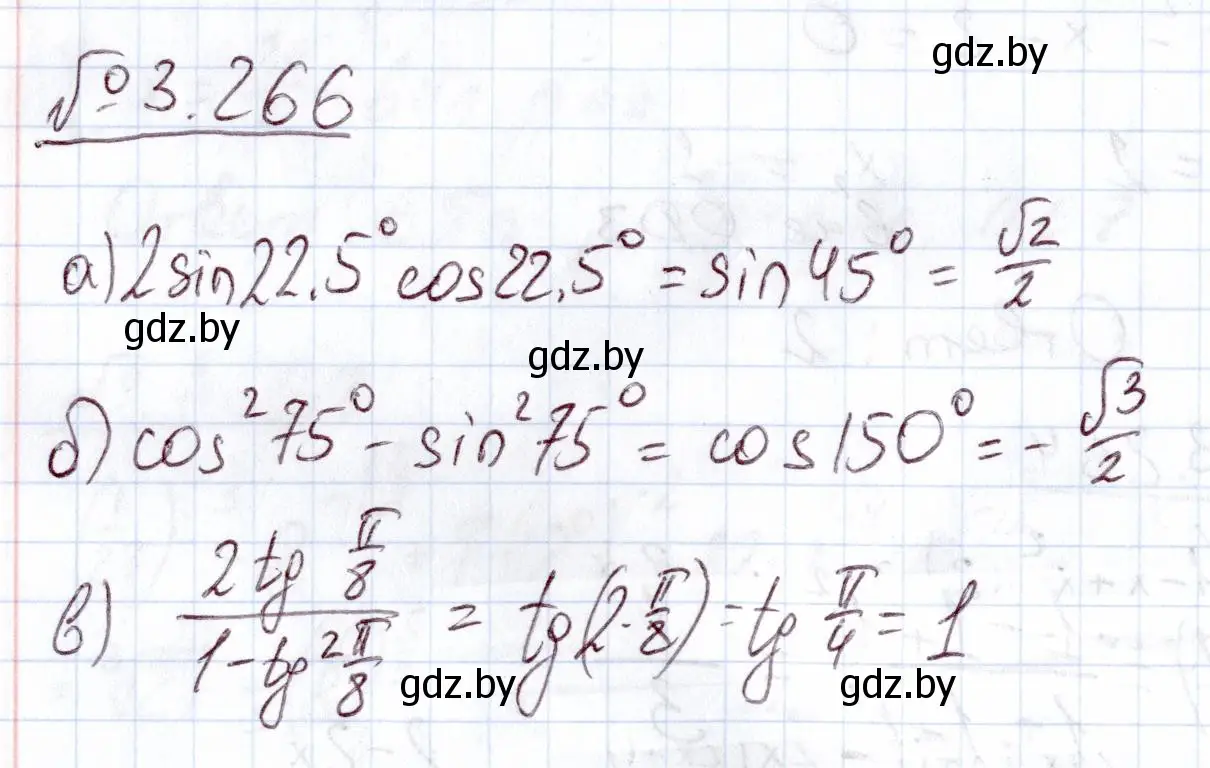 gdz.by
№ 3.266
а) 2sin22,5° cos22,5° = sin45° = √2/2
gdz.by
gdz.by
б) cos²75° - sin²75° = cos150° = - √3/2
в) (2tg π/8)/(1-tg² π/8) = tg(2·π/8) = tg π/4 = 1
gdz.by
gdz.by